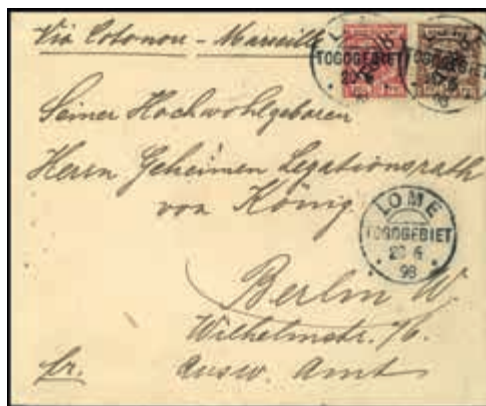 Via Cotonou - Marseille
LOME
TOGOGEBIET
98
TOGOGEBIET
98
Seiner Hochwohlgeboren
Herrn Geheimen Legationsrath
von König
LOME
TOGOGEBIET
20 6
98
Berlin W.
Wilhelmstr. 76
fr.
Ausw. Amt